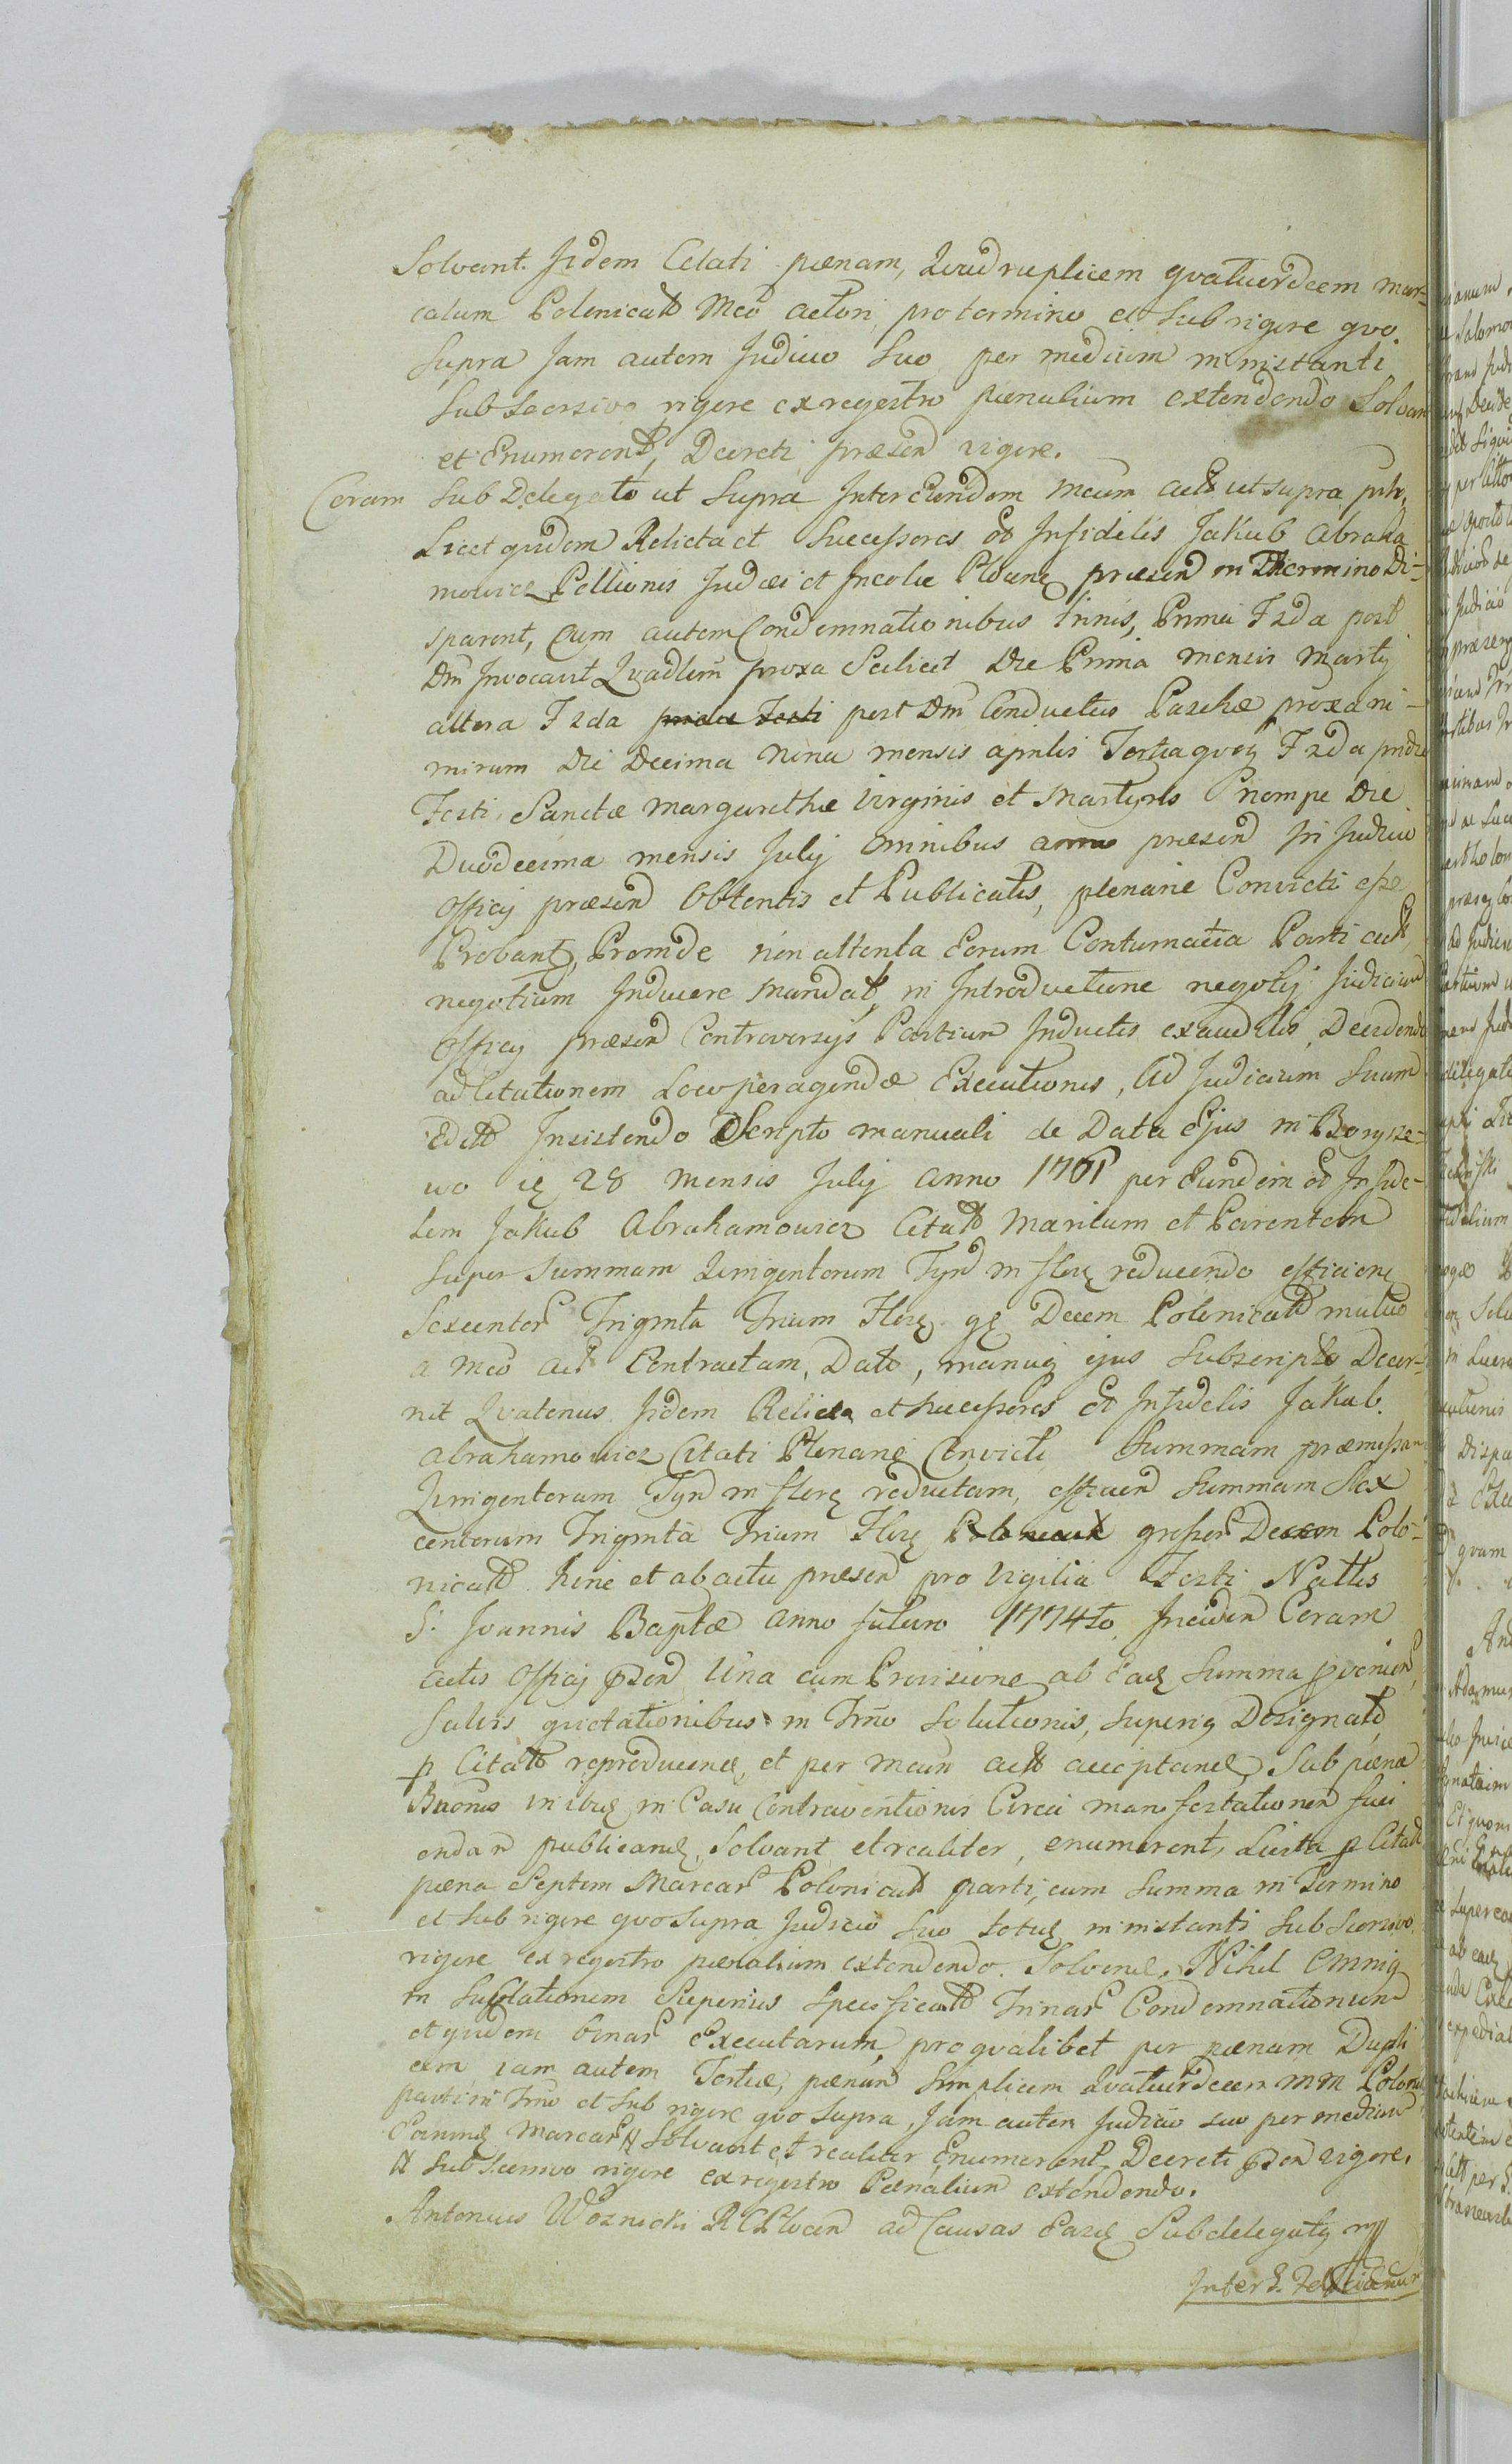 Solvant. Iidem Citati pœnam, Quadruplicem qvatuordecem mar-
carum Polonicalt Mco actori, pro termino et Sub rigore qvo
Supra Jam autem Judicio Suo per medium in instanti
Sub Scersivo rigore ex regestro pœnalium extendendo Solvan
et Enumerent, Decreti præsen vigore.
Coram Sub Delegato ut Supra Inter Eundem Mcum act ut supra
Licet quidem Relicta et Successores od Infidelis Jakub Abraha
mowicz Pellionis Judæi et Incolæ Plocen præsen in Termino Di-
sparent, Cum autem Condemnationibus trinis, Prima Frda post
Dm Invocavit Qvadlem proxa Scilicet Die Prima mensis Martij
altera Frda post Dm Conductus Paschæ proxa ni-
mirum Die Decima Nona mensis aprilis Tertia qvoq Frda pridie
Festi Sanctæ Margarethæ Virginis et Martyris nempe Die
Duodecima mensis Julij omnibus anno præsen in Judicio
Officij præsen Obtentis et Publicatis, plenarie Convicti esse
Probant, Proinde non attenta Eorum Contumacia Parti act
negotium Inducere Mandat, in Introductione negotij Judicium
Officij præsen Controversijs Partium Inductis exauditis, Decidendo
ad Citationem Loco peragendæ Executionis, Ad Judicium Suum
Edit Insistendo Scripto manuali de Data Ejus in Borysze-
wo 28 mensis Julij anno 1761 per Eundem od Infide-
lem Jakub Abrahamowicz Citat Maritum et Parentem
Super Summam Quingentorum Tynf in flor reducendo efficien
Sexcentor Triginta Trium Flor gr Decem Polonicalt mutuo
a Mco act Contractam, Dato, manuq ejus Subscripto Decer-
nit Qvatenus Iidem Relicta et Successores od Infidelis Jakub
Abrahamowicz Citati Plenarie Convicti Summam præmissam
Quingentorum Tynf in flore reductam, efficien Summam Sex
centorum Triginta Trium Flor grossor Decem Polo-
nicalt hinc et ab actu præsen pro Vigilia Festi Nattis
S. Joannis Baptæ anno futuro 1774to Inciden Coram
actis Officij pzen Una cum Provisione ab Eadq Summa pvenien
Salvis quietationibus in Trno Solutionis, Superiq Designat
p Citat reproducend, et per Mcum act acceptand, Sub pœna
Bnonis in Casu Contraventionis Circa manifestationem faci
endam publicand, Solvant et realiter, enumerent, Luita p Citat
pœna Septem Marcar Polonicalt parti, cum Summa in Termino
et Sub rigore qvo Supra Judicio Suo in instanti Sub Scersivo
rigore ex regestro pœnalium extendendo. Solvend. Nihil Omniq
in Sublationem Superius Specificat Trinar Condemnationum
et quidem binar Executarum, pro qvalibet per pœnam Dupli
cem, iam autem Tertiæ, pœnam Simplicem Qvatuordecem MM Polon
parti in Trno et Sub rigore qvo Supra, Jam autem Judicio suo per medium
Earumd Marcar # Solvant et realiter Enumerent, Decreti pzen vigore.
# Sub Scersivo rigore ex regestro Pœnalium extendendo.
Antonius Woznicki R C Plocen ad Causas Easd Subdelegatq mp
Inter G.